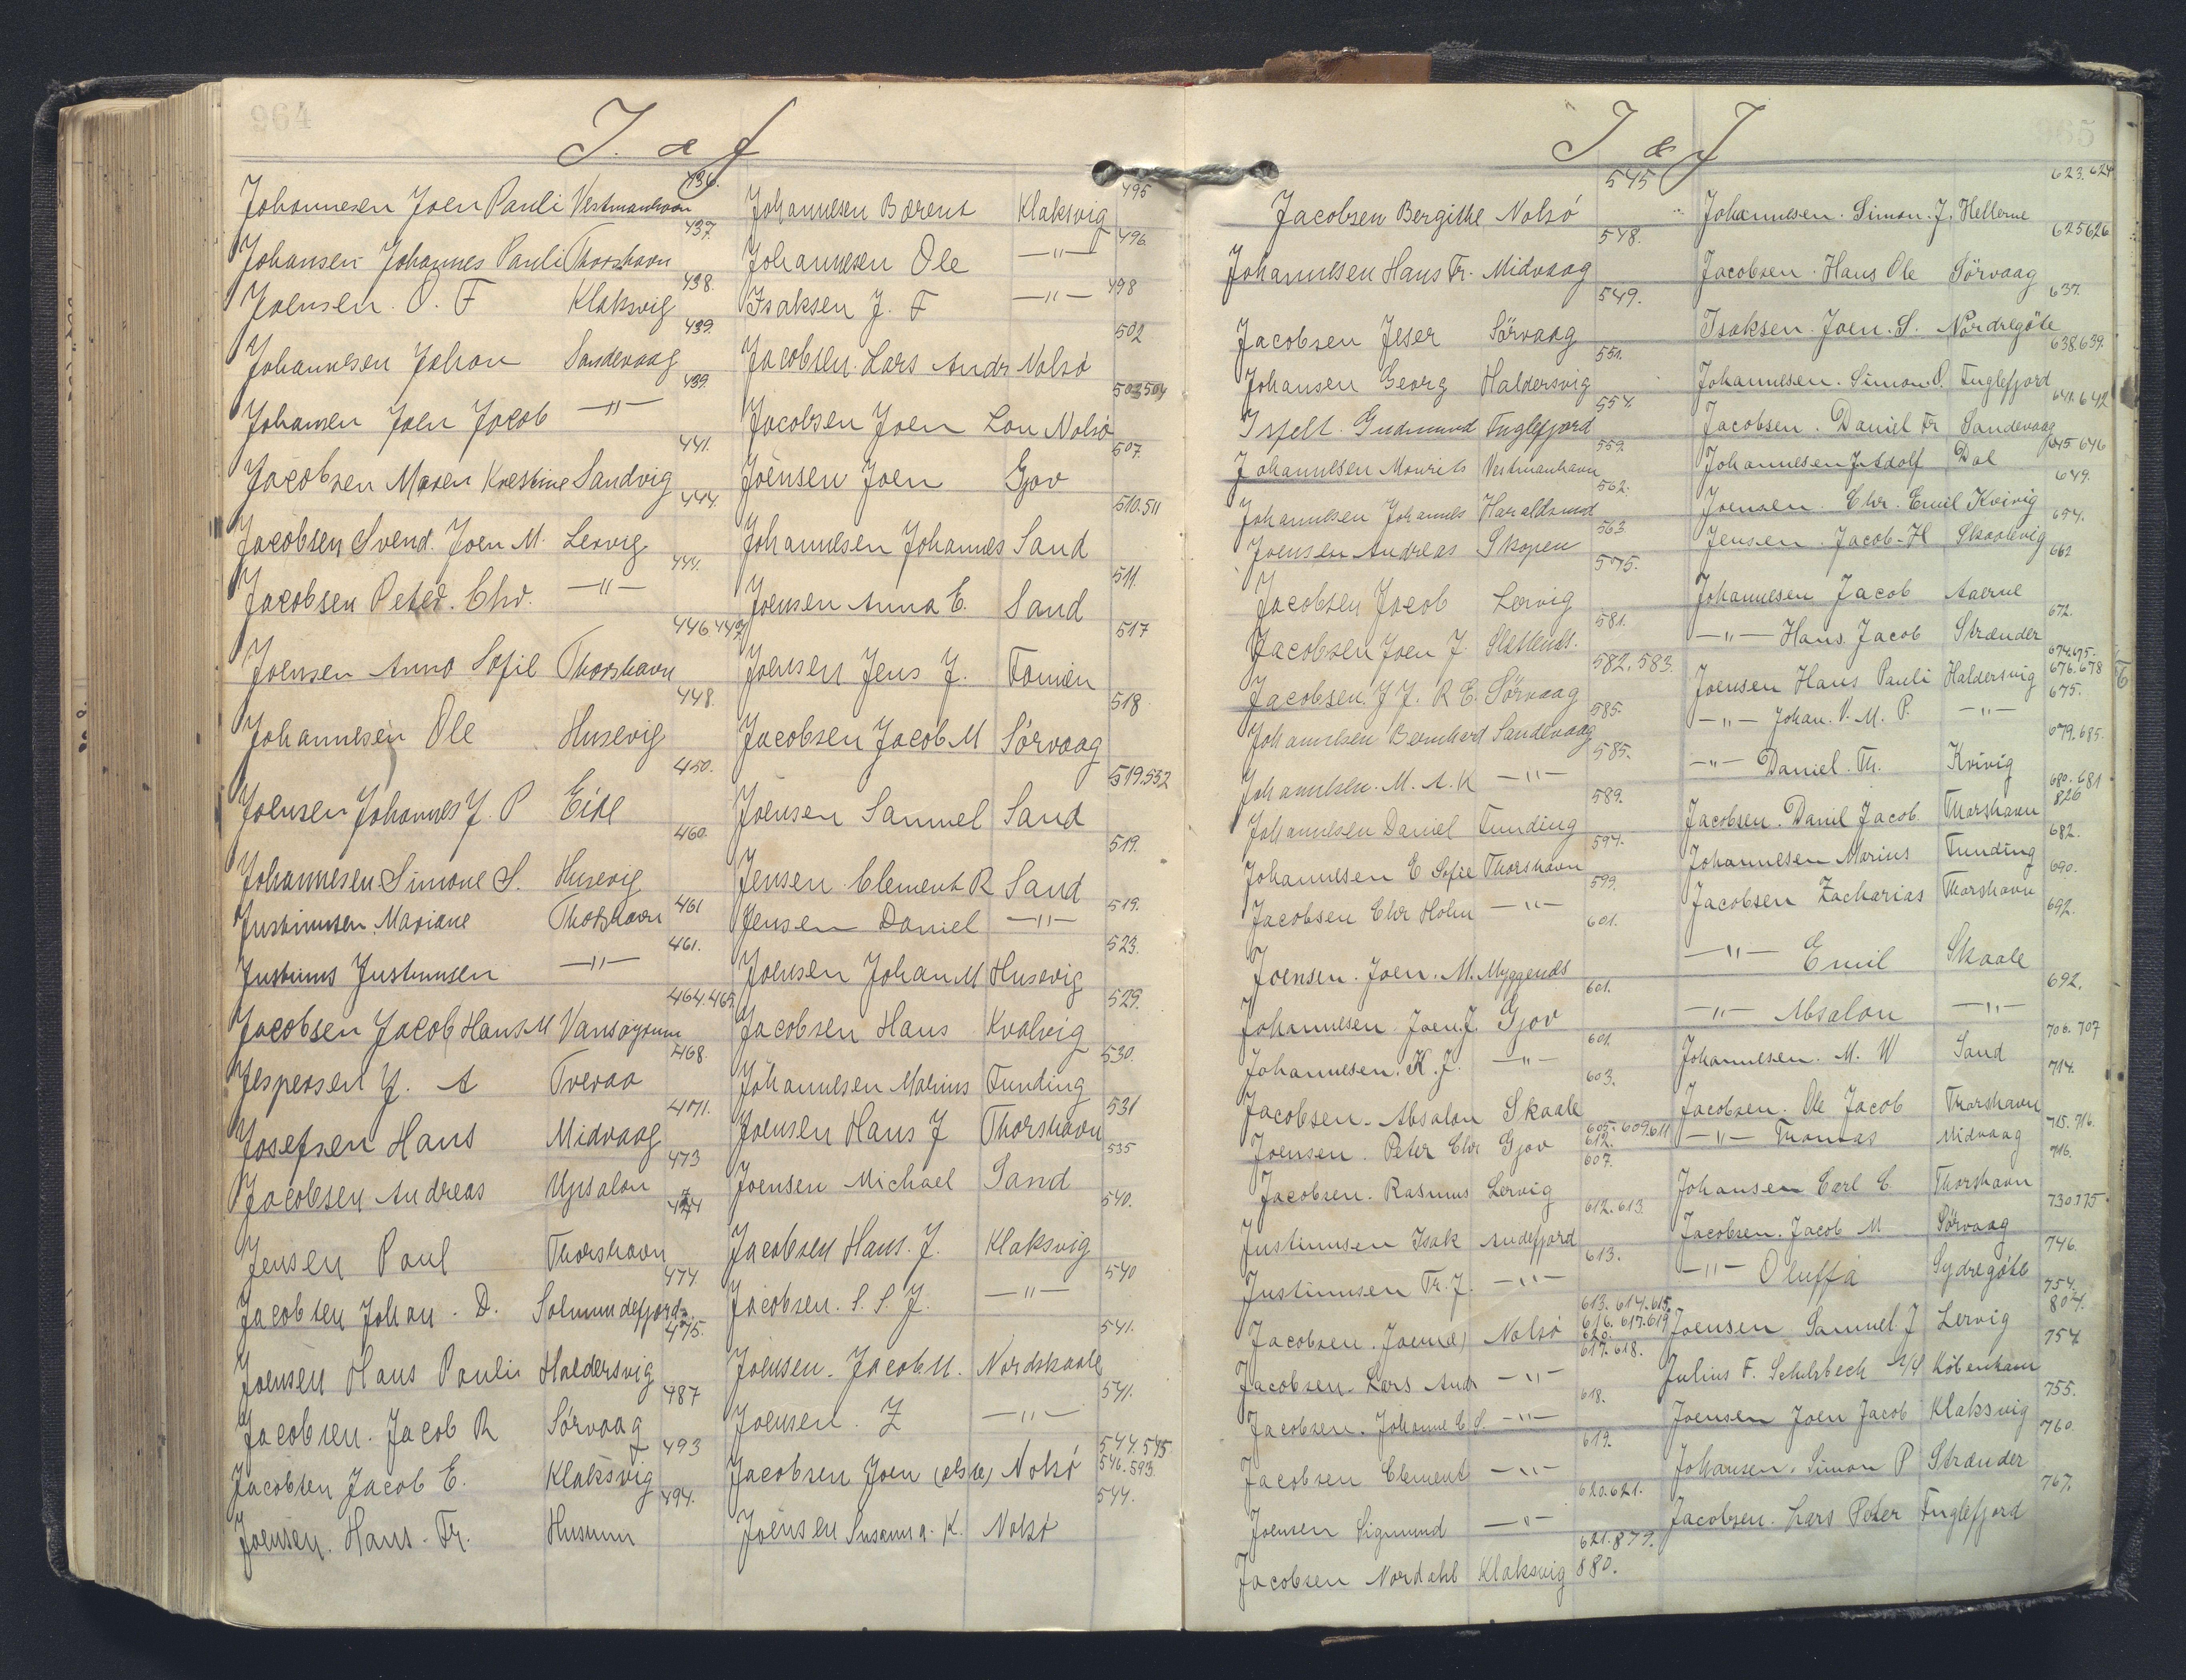 964
I. & J
436.
Johannesen Joen Pauli Vestmanhavn
437.
Johansen Johannes Pauli Thorshavn
438.
Joensen. O. F Klaksvig
439.
Johannesen Johan Sandevaag
439.
Johansen Joen Jacob —"—
441.
Jacobsen Maren Krestine Sandvig
444.
Jacobsen Svend. Joen M. Lervig
444.
Jacobsen Peter. Chr. —"—
446 447
Joensen Anna Sofie Thorshavn
448.
Johannesen Ole Husevig
450.
Joensen Johannes J. P Eide
460.
Johannesen Simone S. Husevig
461
Justinusen. Mariane Thorshavn
461.
Justinus Justinusen —"—
464. 465
Jacobsen Jacob Hans M
468.
Jespersen J. A Tveraa
471.
Josefsen Hans Midvaag
473
Jacobsen Andreas Upsalon
474
Jensen Paul Thorshavn
474
Jacobsen Johan. D. Solmundefjord
475.
Joensen Hans Paulis Haldersvig
487
Jacobsen. Jacob R Sørvaag
493
Jacobsen Jacob E. Klaksvig
494.
Joensen. Hans. Fr. Husum
495
Johannesen Bærent Klaksvig
496
Johannesen Ole —"—
498
Isaksen J. F —"—
502
Jacobsen. Lars Andr Nolsø
503 504
Jacobsen Joen Lon Nolsø
507
Joensen Joen Gjov
510. 511
Johannesen Johannes Sand
511.
Joensen Anna E. Sand
517
Joensen Jens J. Famien
518
Jacobsen Jacob M Sørvaag
519. 532
Joensen Samuel Sand
519.
Jensen Clement R Sand
519.
Jensen Daniel —"—
523.
Joensen Johan M Husevig
529.
Jacobsen Hans Kvalvig
530.
Johannesen Marius Funding
531
Joensen Hans J Thorshavn
535
Joensen Michael Sand
540.
Jacobsen Hans. J. Klaksvig
540
Jacobsen. S. S. J. —"—
541.
Joensen. Jacob M. Nordskaale
541.
Joensen. Z —"—
544. 545
546. 593
Jacobsen Joen Nolsø
544.
Joensen Susanna. K. Nolsø
965
I & J
545
Jacobsen Bergithe Nolsø
548.
Johannesen Hans Fr. Midvaag
549.
Jacobsen Jeser Sørvaag
551.
Johansen Georg Haldersvig
554.
Isfelt. Gudmund Fuglefjord
559.
Johannesen Mourits Vestmanhavn
562.
Johannesen Johannes Haraldsund
563
Joensen Andreas Skopen
575.
Jacobsen Jacob Lervig
581.
Jacobsen Joen J.
582. 583
Jacobsen. J J. R E. Sørvaag
585.
Johannesen Bernhard Sandevaag
585.
Johannesen. M. A. K —"—
589.
Johannesen Daniel Funding
594.
Johannesen E Sofie Thorshavn
599.
Jacobsen Chr Holm —"—
601.
Joensen. Joen. M. Myggends
601.
Johannesen. Joen. J. Gjov
601.
Johannesen. K. J. —"—
603.
Jacobsen. Absalon Skaale
605. 609. 611
612.
Joensen. Peter Chr Gjov
607.
Jacobsen. Rasmus Lervig
612. 613.
Justinusen Isak Andefjord
613.
Justinusen Fr. J. —"—
613. 614. 615.
616. 617. 619
620.
Jacobsen. Joen Nolsø
617. 618.
Jacobsen. Lars Andr —"—
618.
Jacobsen. Johanne E S. —"—
619.
Jacobsen Clement —"—
620. 621.
Joensen Sigmund —"—
621. 879.
Jacobsen Nordahl Klaksvig 880.
623. 624
Johannesen. Simon. J. Hellerne
625 626
Jacobsen. Hans Ole Sørvaag
637.
Isaksen. Joen. S. Nordregøte
638. 639.
Johannesen. Simon. P. Fuglefjord
641. 642
Jacobsen. Daniel Fr Sandevaag
645 646
Johannesen J. Adolf Dal
649.
Joensen. Chr. Emil Kvivig
654.
Jensen. Jacob-H Skaalevig
662
Johannesen Jacob Aaerne
672.
—"— Hans Jacob Strænder
674. 675.
676. 678
Joensen Hans Pauli Haldersvig
675.
—"— Johan. V. M. P. —"—
679. 685.
—"— Daniel. Th. Kvivig
680. 681
826
Jacobsen. Daniel Jacob. Thorshavn
682.
Johannesen Marius Funding
690.
Jacobsen Zacharias Thorshavn
692.
—"— Emil Skaale
692.
—"— Absalon —"—
706. 707
Johannesen. M. W Sand
714.
Jacobsen. Ole Jacob Thorshavn
715. 716.
—"— Thomas Midvaag
716.
Johansen Carl C. Thorshavn
730. 775
Jacobsen. Jacob M Sørvaag
746.
—"— Oluffa Sydregøte
754.
804.
Joensen Samuel. J Lervig
754
Julius F. Schelsbeck A/S København
755.
Joensen Joen Jacob Klaksvig
760.
Johansen. Simon P Strænder
767.
Jacobsen. Lars Peter Fuglefjord